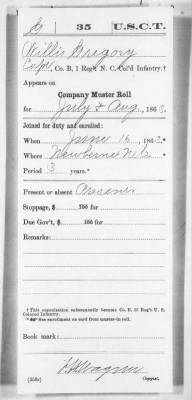 G 35 U.S.C.T.
Willis Gregory
Corpl, Co. B, 1 Reg't N. C. Col'd Infantry.†
Appears on
Company Muster Roll
for July & Aug, 1863.
Joined for duty and enrolled:
When June 16, 1863.*
Where Newberne N.C.
Period 3 years.*
Present or absent Present
Stoppage, $ 100 for
Due Gov't, $ 100 for
Remarks:
† This organization subsequently became Co. B, 35 Reg't U. S.
Colored Infantry.
* See enrollment on card from muster-in roll.
Book mark:
(358c) Copyist.